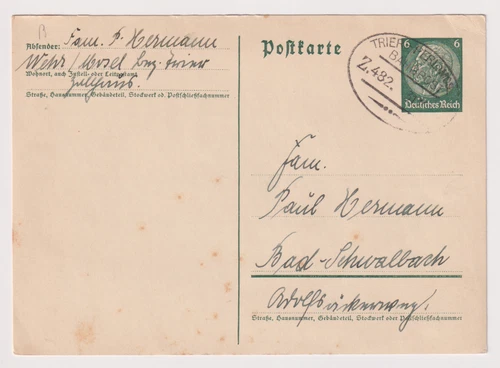 B
Absender: Fam. P. Hermann
Wehr/Mosel Bez. Trier
Wohnort, auch Zustell- oder Leitpostamt
Zollhaus.
Straße, Hausnummer, Gebäudeteil, Stockwerk od. Postschließfachnummer
Postkarte
6 6
Deutsches Reich
TRIER
BAHNPOST
Z.482.
Fam.
Paul Hermann
Bad-Schwalbach
Adolfsäckerweg.
Straße, Hausnummer, Gebäudeteil, Stockwerk oder Postschließfachnummer